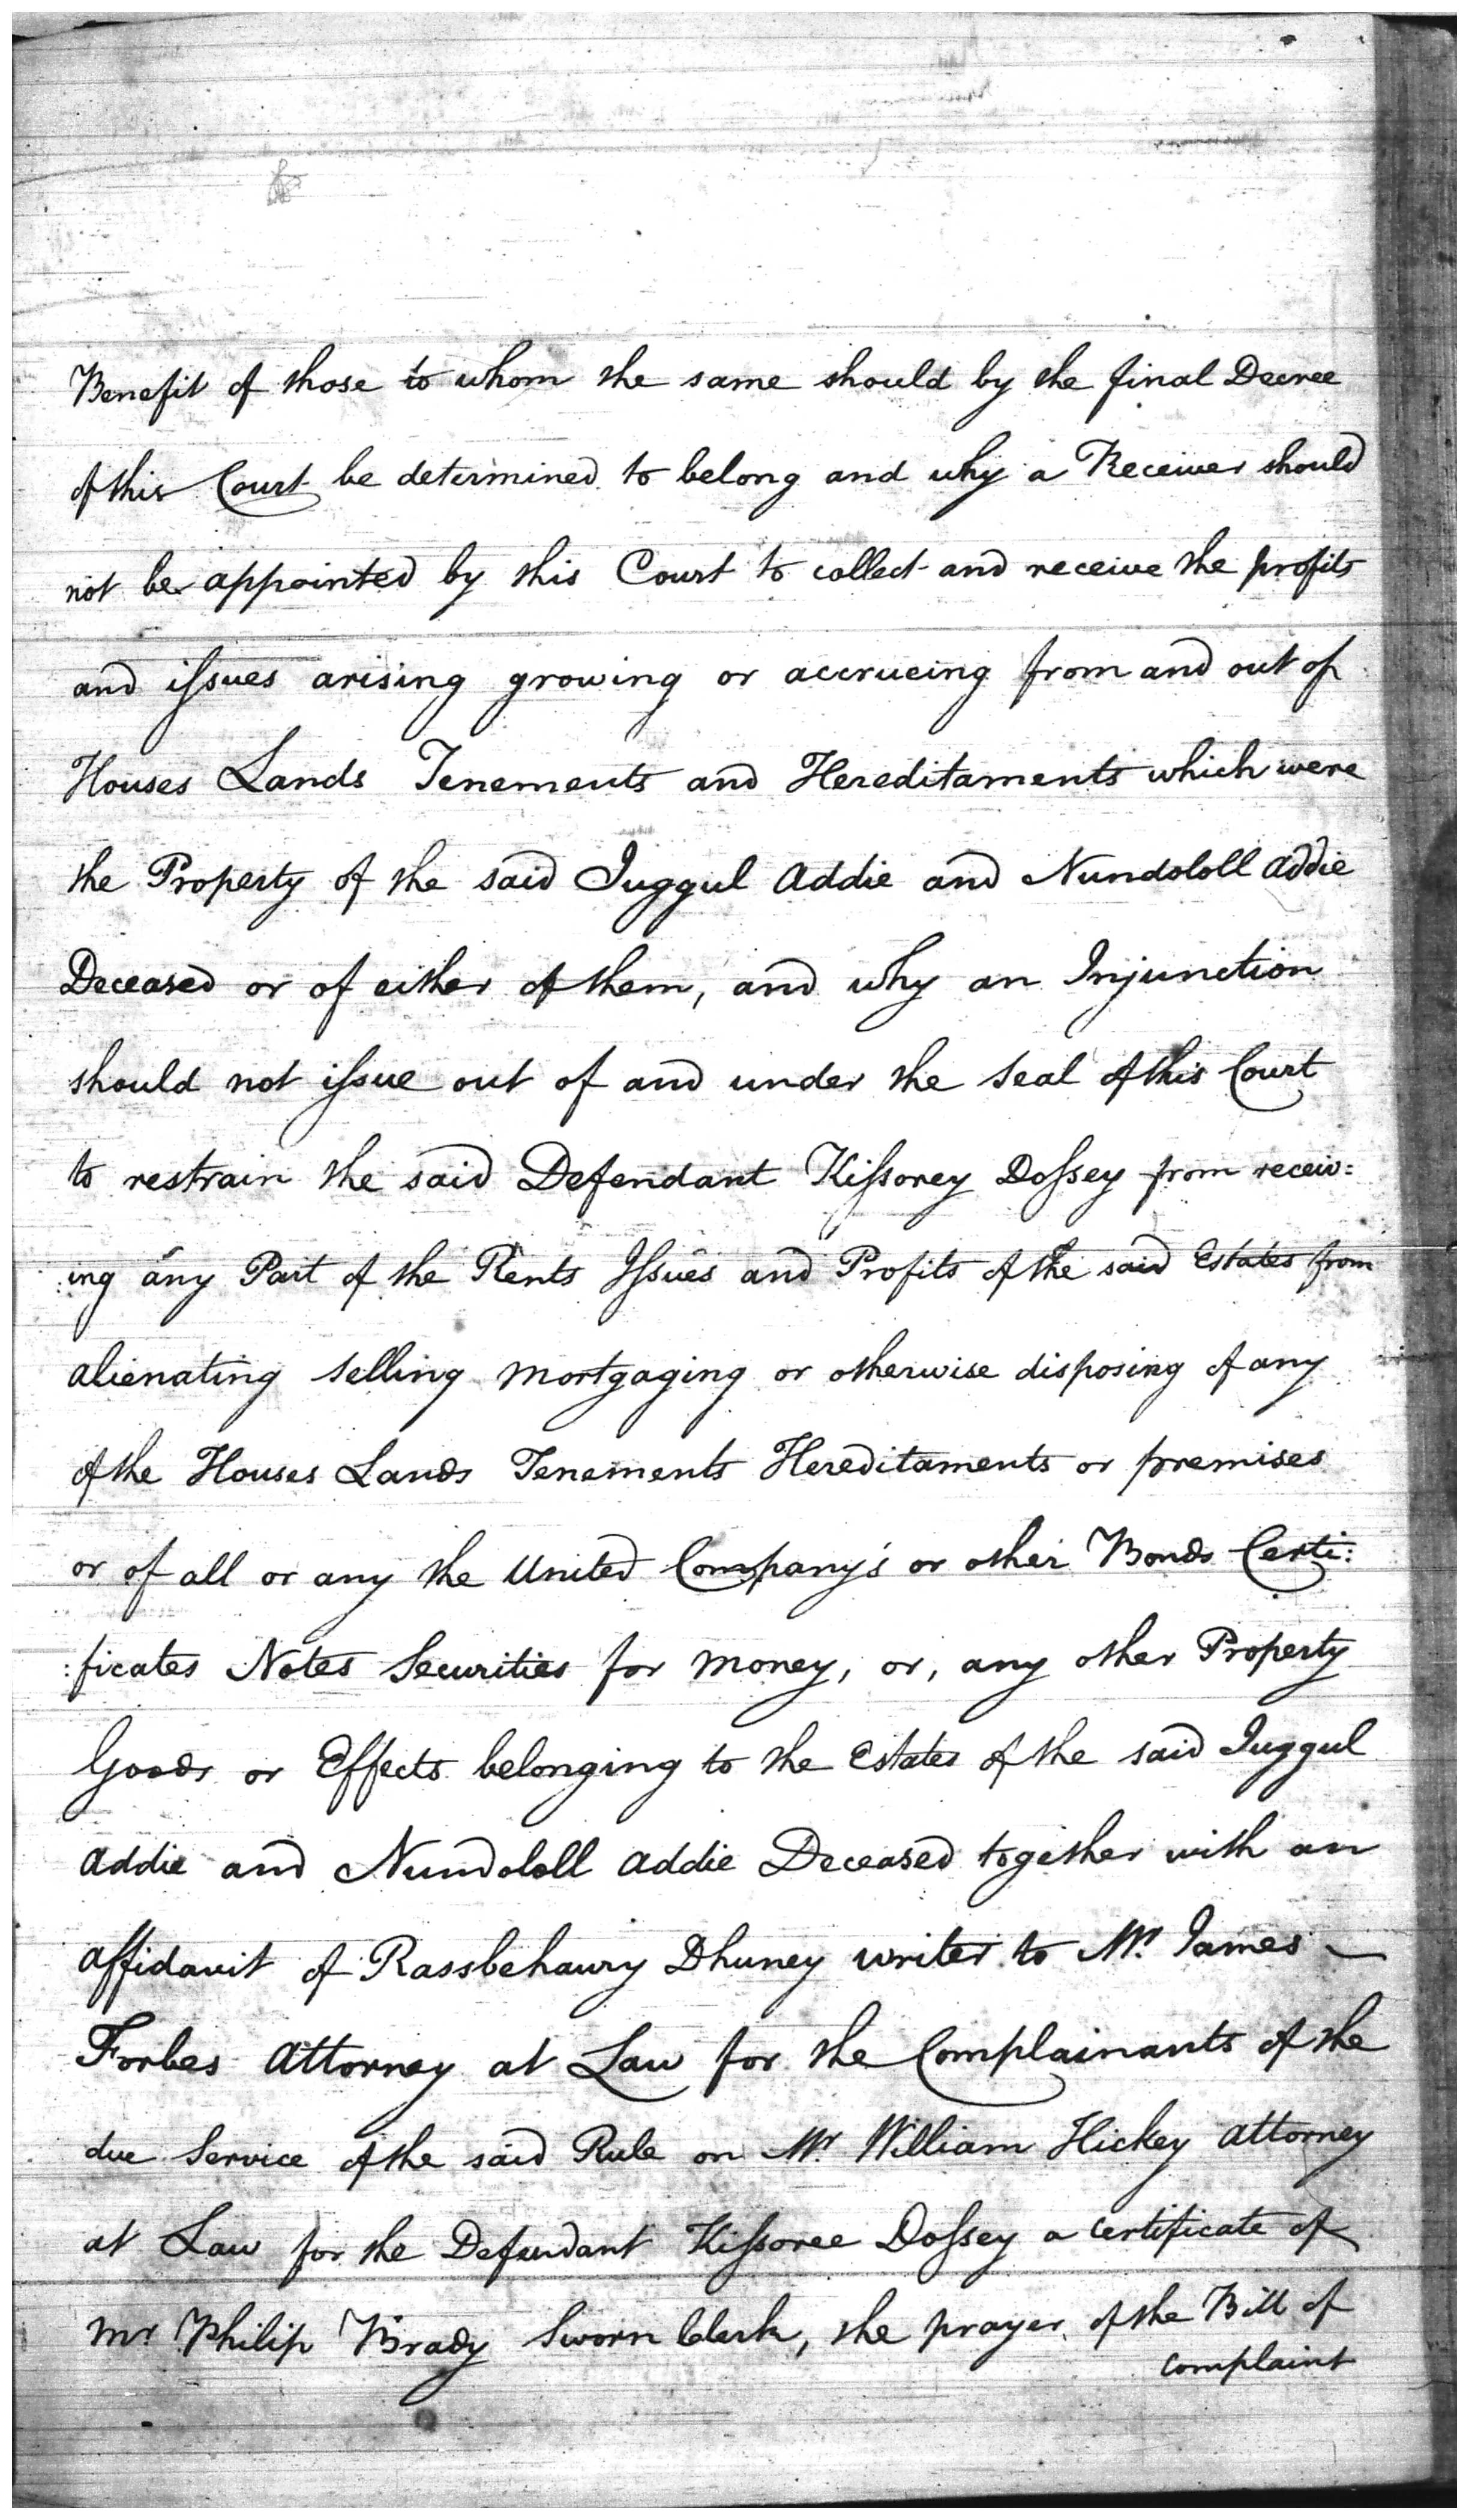 Benefit of those to whom the same should by the final Decree
of this Court be determined to belong and why a Receiver should
not be appointed by this Court to collect and receive the profits
and iſsues arising growing or accrueing from and out of
Houses Lands Tenements and Hereditaments which were
the Property of the said Juggul Addie and Nundololl Addie
Deceased or of either of them, and why an Injunction
should not iſsue out of and under the Seal of this Court
to restrain the said Defendant Kiſsorey Doſsey from receiv:
:ing any Part of the Rents Iſsues and Profits of the said Estates from
alienating selling mortgaging or otherwise disposing of any
of the Houses Lands Tenements Hereditaments or premises
or of all or any the United Company's or other Bonds Certi:
:ficates Notes Securities for money, or, any other Property
Goods or Effects belonging to the Estates of the said Juggul
Addie and Nundololl Addie Deceased together with an
affidavit of Rassbehawry Dhuney writer to Mr. James
Forbes Attorney at Law for the Complainants of the
due Service of the said Rule on Mr. William Hickey Attorney
at Law for the Defendant Kiſsoree Doſsey a Certificate of
Mr Philip Brady Sworn Clerk, the prayer of the Bill of
complaint